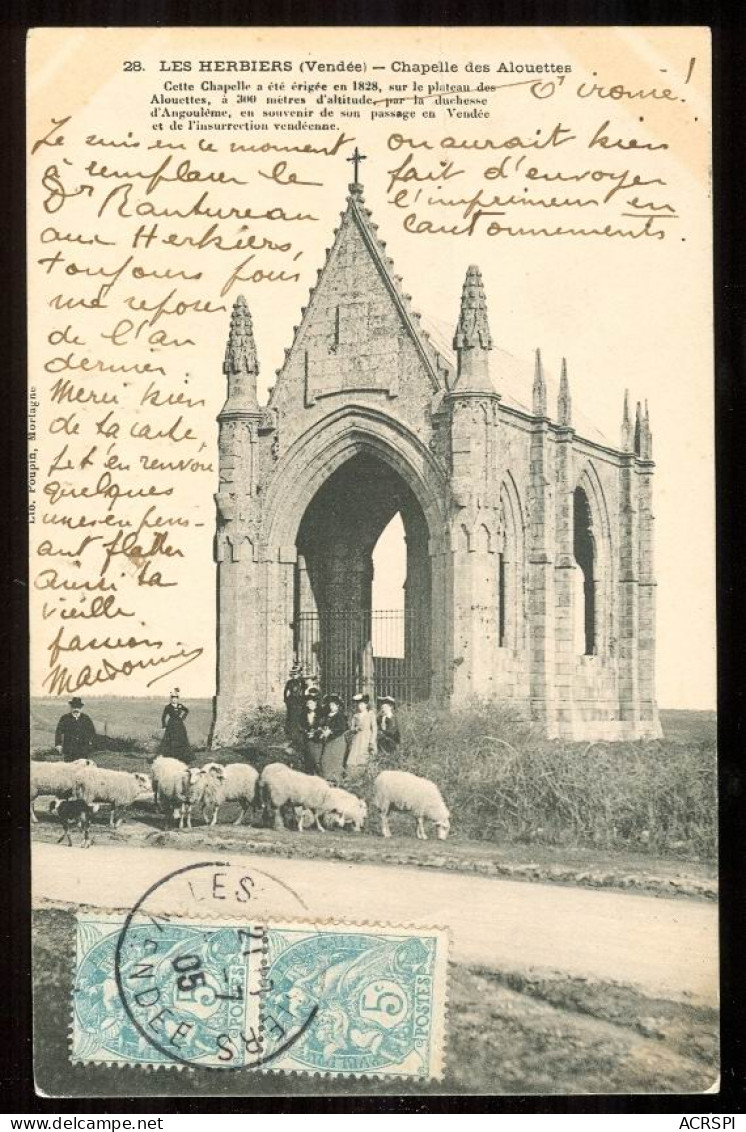 28. LES HERBIERS (Vendée) — Chapelle des Alouettes
Cette Chapelle a été érigée en 1828, sur le plateau des
Alouettes, à 300 mètres d'altitude, par la duchesse
d'Angoulême, en souvenir de son passage en Vendée
et de l'insurrection vendéenne.
O ironie!
Je suis en ce moment
à remplacer le
Dr
aux Herbiers
Toujours pour
me reposer
de l'an
dernier.
Merci bien
de la carte,
Je t'en renvoie
quelques
unes en pens-
ant flatter
ainsi ta
vieille
passion
on aurait bien
fait d'envoyer
l'imprimeur en
cantonnements.
Lib. Poupin, Mortagne
LES HERBIERS
21 - 7
05
VENDÉE
5
POSTES
5
POSTES
ACRSPI